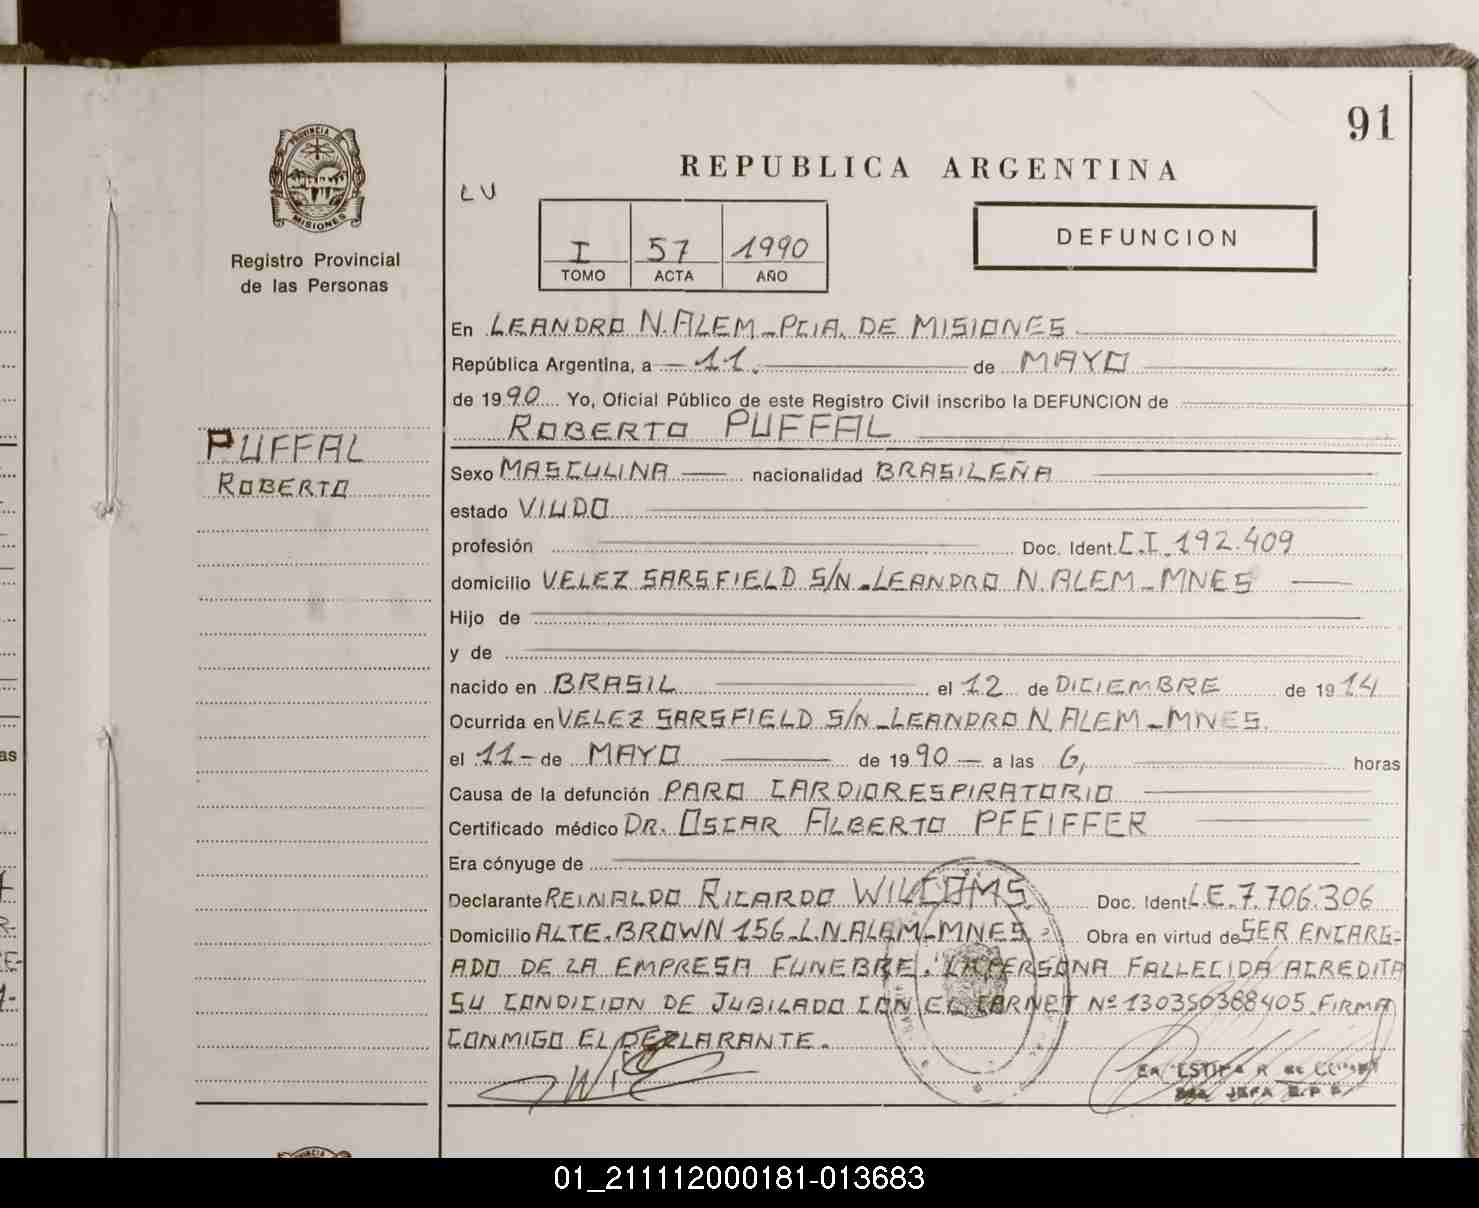 91
PROVINCIA DE
MISIONES
Registro Provincial
de las Personas
PUFFAL
ROBERTO
REPUBLICA ARGENTINA
LV
I 57 1990
TOMO ACTA AÑO
DEFUNCION
En LEANDRO N. ALEM - PCIA. DE MISIONES
República Argentina, a 11. de MAYO
de 1990 Yo, Oficial Público de este Registro Civil inscribo la DEFUNCION de
ROBERTO PUFFAL
Sexo MASCULINA nacionalidad BRASILEÑA
estado VIUDO
profesión Doc. Ident. C.I. 192.409
domicilio VELEZ SARSFIELD S/N - LEANDRO N. ALEM - MNES
Hijo de
y de
nacido en BRASIL el 12 de DICIEMBRE de 1914
Ocurrida en VELEZ SARSFIELD S/N - LEANDRO N. ALEM - MNES.
el 11 - de MAYO de 1990 a las 6, horas
Causa de la defunción PARO CARDIORESPIRATORIO
Certificado médico DR. OSCAR ALBERTO PFEIFFER
Era cónyuge de
Declarante REINALDO RICARDO WILCOMS. Doc. Ident. L.E. 7.706.306
Domicilio ALTE. BROWN 156 - L.N. ALEM - MNES. Obra en virtud de SER ENCARG-
ADO DE LA EMPRESA FUNEBRE. LA PERSONA FALLECIDA ACREDITA
SU CONDICION DE JUBILADO CON EL CARNET Nº 130350388405. FIRMA
CONMIGO EL DECLARANTE.
JEFA
01_211112000181-013683